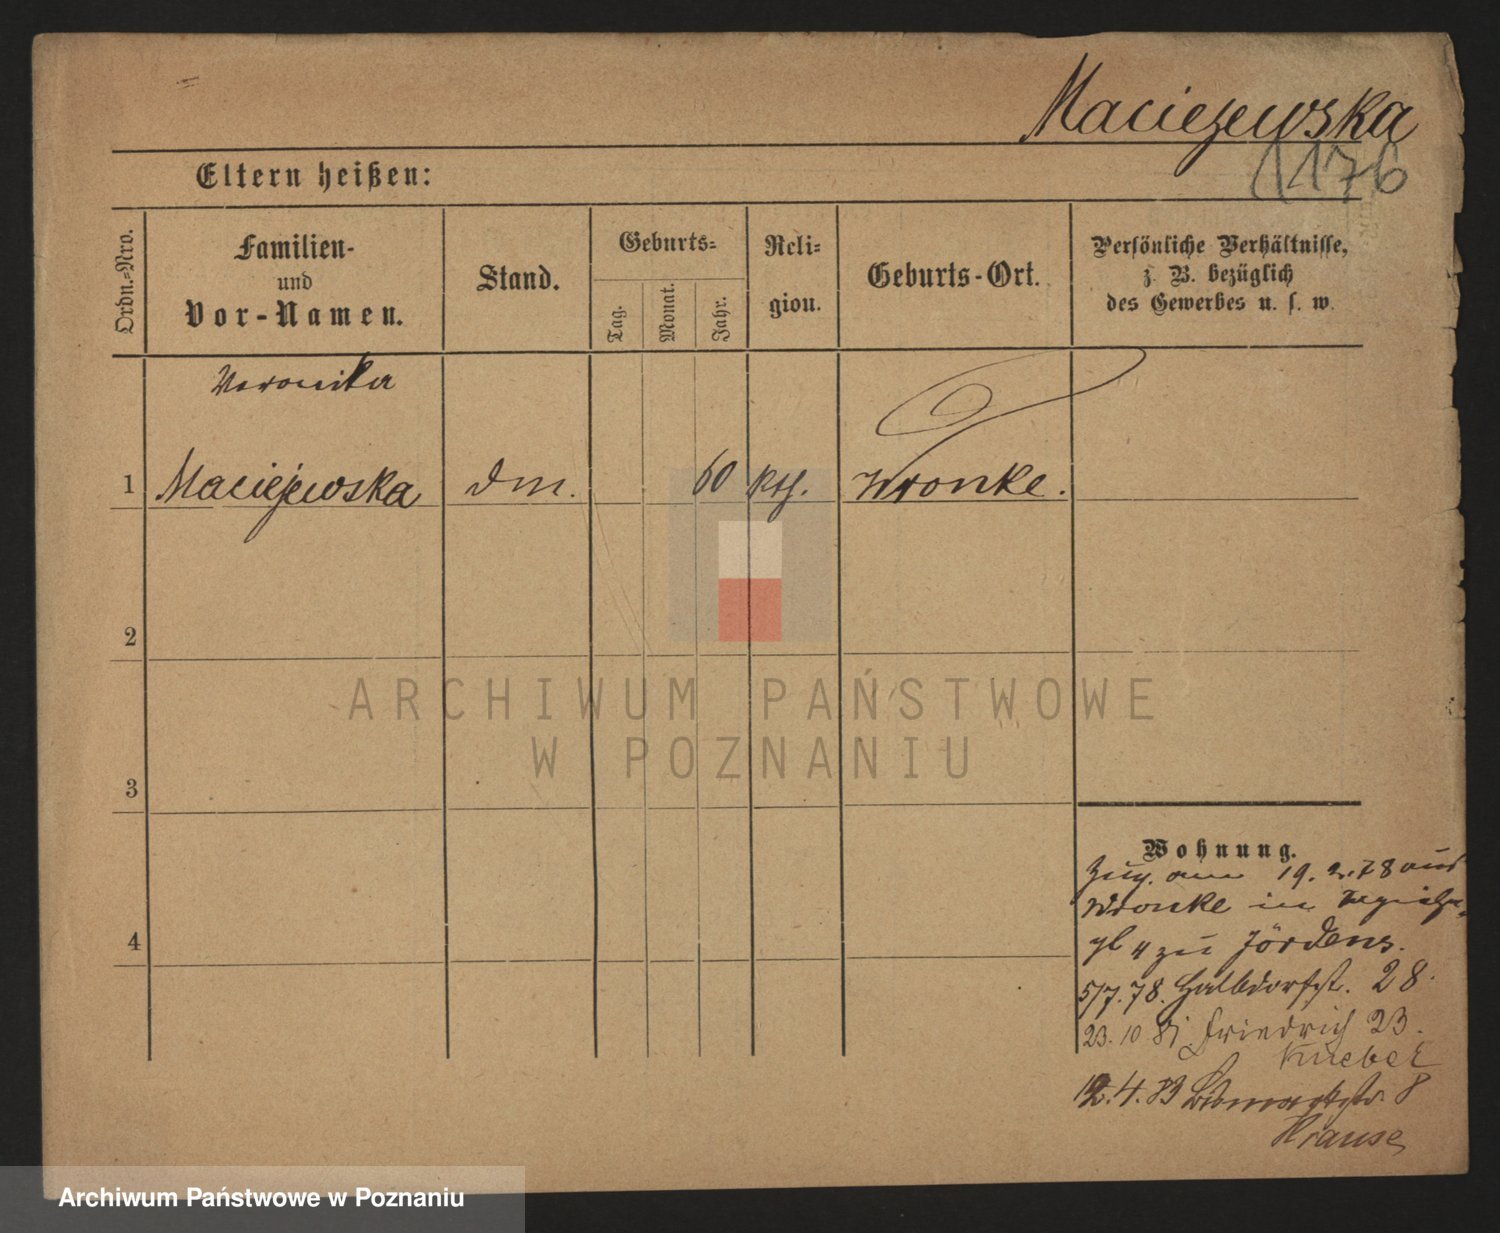 Maciejewska
1176
Eltern heißen:
Ordn.-Nro.
Familien-
und
Vor-Namen.
Stand.
Geburts-
Tag.
Monat.
Jahr.
Reli-
gion.
Geburts-Ort.
Persönliche Verhältnisse,
z. B. bezüglich
des Gewerbes u. s. w.
Veronika
1 Maciejewska dm. 60 kth. Wronke.
2
ARCHIWUM PAŃSTWOWE
W POZNANIU
3
4
Wohnung.
Zug. am 19. 2. 78 aus
Wronke in
4 zu Jördens.
5/7. 78. Halbdorfst. 28.
23. 10 81 Friedrich 23.
Knebel
12. 4. 83 Bismarkstr. 8
Krause
Archiwum Państwowe w Poznaniu